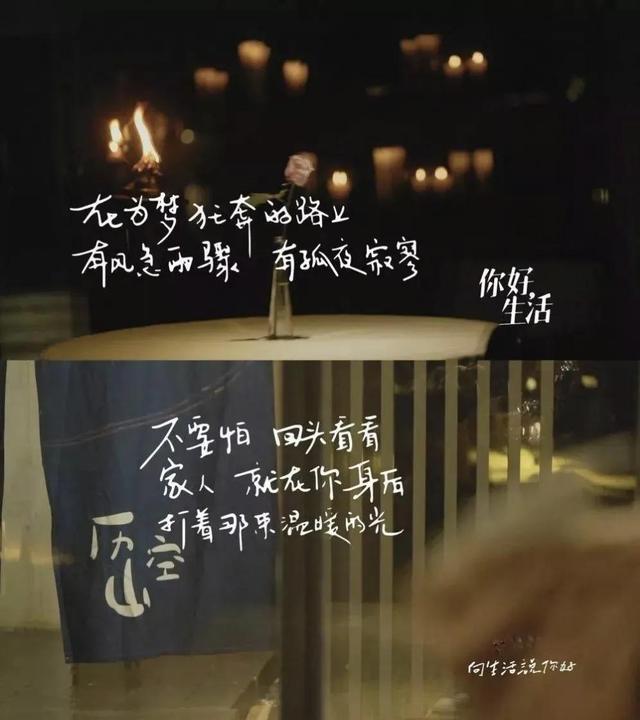 在为梦狂奔的路上
有风急雨骤 有孤夜寂寥
你好,
生活
不要怕 回头看看
家人 就在你身后
打着那束温暖的光
历山
空
向生活說你好